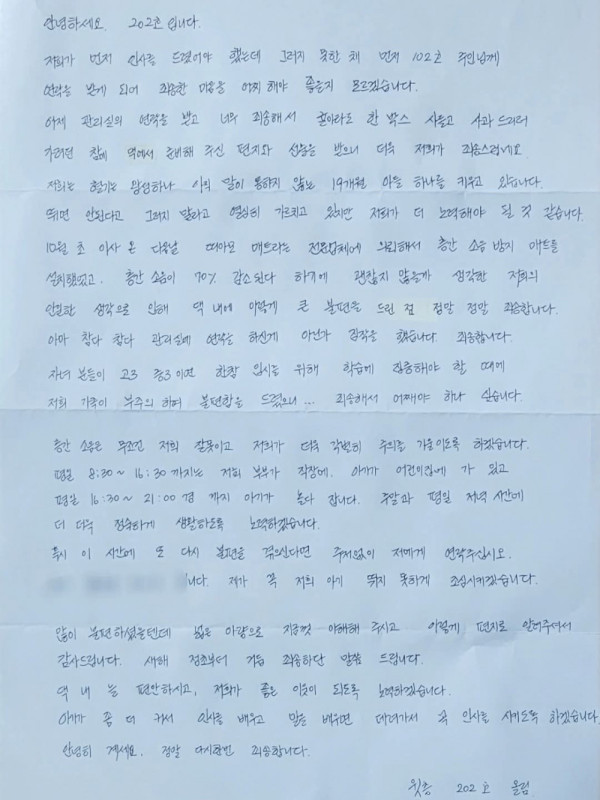 안녕하세요. 202호 입니다.
저희가 먼저 인사를 드렸어야 했는데 그러지 못한 채 먼저 102호 주인님께
연락을 받게 되어 죄송한 마음을 어찌 해야 좋을지 모르겠습니다.
어제 관리실의 연락을 받고 너무 죄송해서 롤이라도 한 박스 사들고 사과 드리러
가려던 참에 댁에서 준비해 주신 편지와 선물을 받으니 더욱 저희가 죄송스럽네요.
저희는 혈기는 왕성하나 아직 말이 통하지 않는 19개월 아들 하나를 키우고 있습니다.
뛰면 안된다고 그러지 말라고 열심히 가르치고 있지만 저희가 더 노력해야 될 것 같습니다.
10월 초 이사 온 다음날 따사모 매트라는 전문업체에 의뢰해서 층간 소음 방지 매트를
설치했었고. 층간 소음이 70% 감소된다 하기에 괜찮지 않을까 생각한 저희의
안일한 생각으로 인해 댁 내에 이렇게 큰 불편을 드린 점 정말 정말 죄송합니다.
아마 참다 참다 관리실에 연락을 하신게 아닌가 짐작을 했습니다. 죄송합니다.
자녀 분들이 고3 중3 이면 한창 입시를 위해 학습에 집중해야 할 때에
저희 가족이 부주의 하며 불편함을 드렸으니 ... 죄송해서 어째야 하나 싶습니다.
층간 소음은 무조건 저희 잘못이고 저희가 더욱 각별히 주의를 기울이도록 하겠습니다.
평일 8:30 ~ 16:30 까지는 저희 부부가 직장에. 아가가 어린이집에 가 있고
평일 16:30 ~ 21:00 경 까지 아기가 놀다 잡니다. 주말과 평일 저녁 시간에
더 더욱 정숙하게 생활하도록 노력하겠습니다.
혹시 이 시간에 또 다시 불편을 겪으신다면 주저없이 저에게 연락주십시오.
니다. 제가 꼭 저희 아기 뛰지 못하게 조심시키겠습니다.
많이 불편하셨을텐데 넓은 아량으로 지금껏 이해해 주시고 이렇게 편지로 알려주셔서
감사드립니다. 새해 정초부터 거듭 죄송하단 말씀 드립니다.
댁 내 늘 편안하시고, 저희가 좋은 이웃이 되도록 노력하겠습니다.
아가가 좀 더 커서 인사를 배우고 말을 배우면 데려가서 꼭 인사를 시키도록 하겠습니다
안녕히 계세요. 정말 다시한번 죄송합니다.
윗층 202호 올림